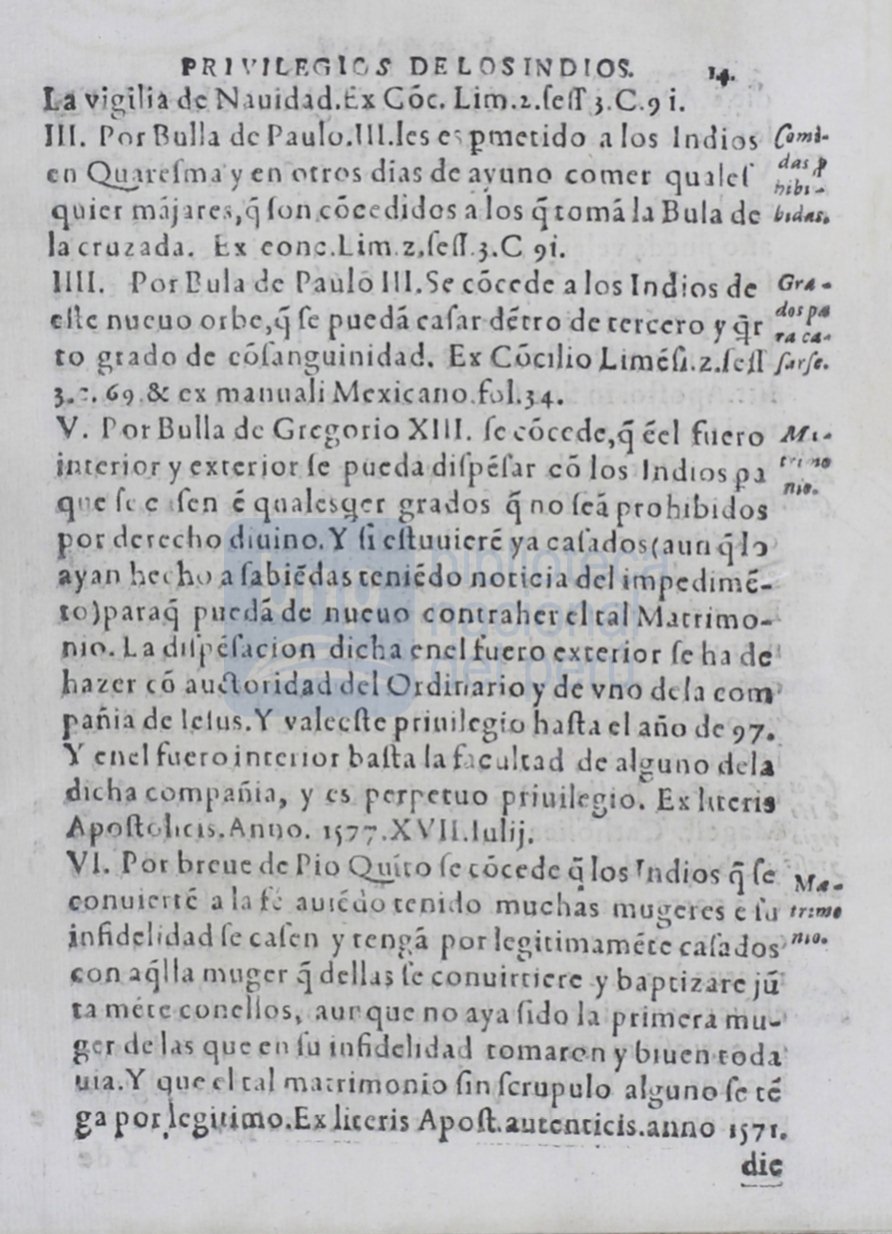 PRIVILEGIOS DE LOS INDIOS. 14.
La vigilia de Nauidad.Ex Cõc. Lim.2.ſeſſ 3.C.9 i.
III. Por Bulla de Paulo.III.les es pmetido a los Indios
en Quareſma y en otros dias de ayuno comer qualeſ
quier mãjares,q̃ ſon cõcedidos a los q̃ tomã la Bula de
la cruzada. Ex conc.Lim.2.ſeſſ.3.C 9i.
Comi-
das p
hibi-
bidas.
IIII. Por Bula de Paulo III.Se cõcede a los Indios de
eſte nueuo orbe,q̃ ſe puedã caſar dẽtro de tercero y q̃r
to grado de cõſanguinidad. Ex Cõcilio Limẽſi.2.ſeſſ
3.c. 69 & ex manuali Mexicano.fol.34.
Gra-
dos pa
ra ca-
ſarſe.
V. Por Bulla de Gregorio XIII. ſe cõcede,q̃ ẽel fuero
interior y exterior ſe pueda diſpẽſar cõ los Indios pa
que ſe caſen ẽ qualesqer grados q̃ no ſeã prohibidos
por derecho diuino.Y ſi eſtuuierẽ ya caſados(aun q̃ lo
ayan hecho a ſabiẽdas teniẽdo noticia del impedimẽ-
to)paraq̃ puedã de nueuo contraher el tal Matrimo-
nio. La diſpẽſacion dicha enel fuero exterior ſe ha de
hazer cõ auctoridad del Ordinario y de vno dela com
pañia de Ieſus.Y valeeſte priuilegio haſta el año de 97.
Y enel fuero interior baſta la facultad de alguno dela
dicha compañia, y es perpetuo priuilegio. Ex literis
Apoſtolicis.Anno. 1577.XVII.Iulij.
Ma
trimo
nio.
VI. Por breue de Pio Quĩto ſe cõcede q̃ los Indios q̃ ſe
conuiertẽ a la fẽ auiẽdo tenido muchas mugeres ẽ ſu
infidelidad ſe caſen y tengã por legitimamẽte caſados
con aq̃lla muger q̃ dellas ſe conuirtiere y baptizare jũ
ta mẽte conellos, aunque no aya ſido la primera mu-
ger de las que en ſu infidelidad tomaron y biuen toda
uia.Y que el tal matrimonio ſin ſcrupulo alguno ſe tẽ
ga por legitimo.Ex literis Apoſt.autenticis.anno 1571.
Ma-
trimo
nio.
dic
biblioteca
nacional
del perú